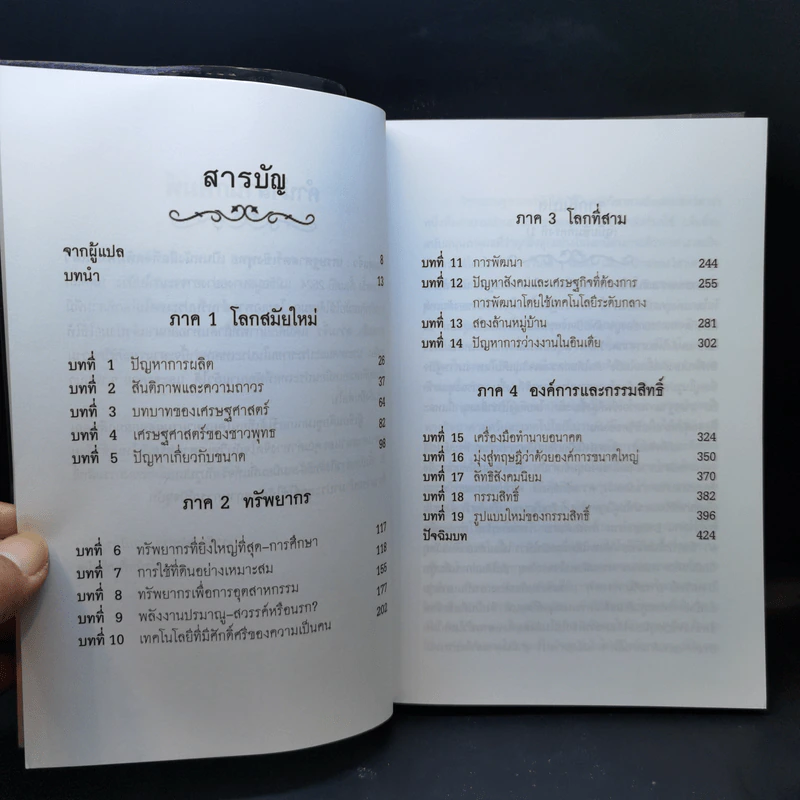 สารบัญ
จากผู้แปล 8
บทนำ 13
ภาค 1 โลกสมัยใหม่
บทที่ 1 ปัญหาการผลิต 26
บทที่ 2 สันติภาพและความถาวร 37
บทที่ 3 บทบาทของเศรษฐศาสตร์ 64
บทที่ 4 เศรษฐศาสตร์ของชาวพุทธ 82
บทที่ 5 ปัญหาเกี่ยวกับขนาด 98
ภาค 2 ทรัพยากร
บทที่ 6 ทรัพยากรที่ยิ่งใหญ่ที่สุด-การศึกษา 117
บทที่ 7 การใช้ที่ดินอย่างเหมาะสม 118
บทที่ 8 ทรัพยากรเพื่อการอุตสาหกรรม 155
บทที่ 9 พลังงานปรมาณู-สวรรค์หรือนรก? 177
บทที่ 10 เทคโนโลยีที่มีศักดิ์ศรีของความเป็นคน 202
ภาค 3 โลกที่สาม
บทที่ 11 การพัฒนา 244
บทที่ 12 ปัญหาสังคมและเศรษฐกิจที่ต้องการ 255
การพัฒนาโดยใช้เทคโนโลยีระดับกลาง
บทที่ 13 สองล้านหมู่บ้าน 281
บทที่ 14 ปัญหาการว่างงานในอินเดีย 302
ภาค 4 องค์การและกรรมสิทธิ์
บทที่ 15 เครื่องมือทำนายอนาคต 324
บทที่ 16 มุ่งสู่ทฤษฎีว่าด้วยองค์การขนาดใหญ่ 350
บทที่ 17 ลัทธิสังคมนิยม 370
บทที่ 18 กรรมสิทธิ์ 382
บทที่ 19 รูปแบบใหม่ของกรรมสิทธิ์ 396
ปัจฉิมบท 424